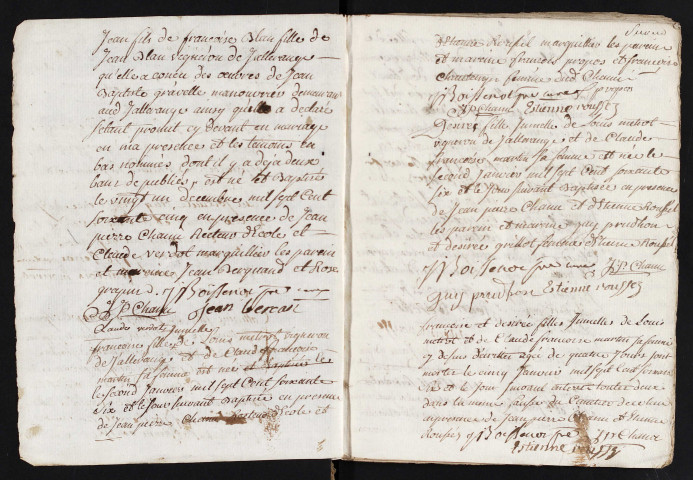 Jean fils de françoise Blan fille de
Jean Blan vigneron de Jallerange
qu'elle a conçu des œuvres de Jean
Baptiste gravelle manouvrier demeurant
aud Jallerange ainsy qu'elle a déclaré
s'etant promit cy devant en mariage
en ma presence et les temoins en
bas nommés, dont il y a deja deux
bans de publiés, est né et Baptisé
le vingt un decembre mil sept Cent
soixante cinq en presence de Jean
pierre Chanu Recteur d'Ecole et
Claude verdot marguillier les parein
et mareine Jean Becquand et Rose
J Boissenot ptre curé
JP Chanu Jean
Claude verdot Jumelles
françoise fille de Louis metrot vigneron
de Jallerange et de Claude françoise
martin sa femme est née et Baptisée le
second Janvier mil sept Cent soixante
six et le Jour suivant Baptisée en presence
de Jean pierre Chanu Recteur d'Ecole et
Suivé
Etienne Roussel marguillier les parein
et mareine francois propos et francoise
femme dud Chanu
J Boissenot ptre curé propos
JP Chanu Estienne roussel
Desirée fille Jumelle de Louis metrot
vigneron de Jallerange et de Claude
françoise martin sa femme est née le
second Janvier mil sept Cent soixante
six et le Jour suivant Baptisée en presence
de Jean pierre Chanu et d'Etienne Roussel
les parein et mareine guy prudhon
et desirée guillot femme d'Etienne Roussel
J Boissenot ptre curé JP Chanu
Guy prudhon Estienne roussel
françoise et desirée filles Jumelles de Louis
metrot et de Claude francoise martin sa femme
cy dessus decrittes agées de quatre Jours sont
mortes le cinq Janvier mil sept Cent soixante
six et le Jour suivant enterrées toutes deux
dans la meme fosse au Cimetiere de ce lieu
en presence de Jean pierre Chanu et Etienne
Roussel J Boissenot ptre JP Chanu
Estienne roussel